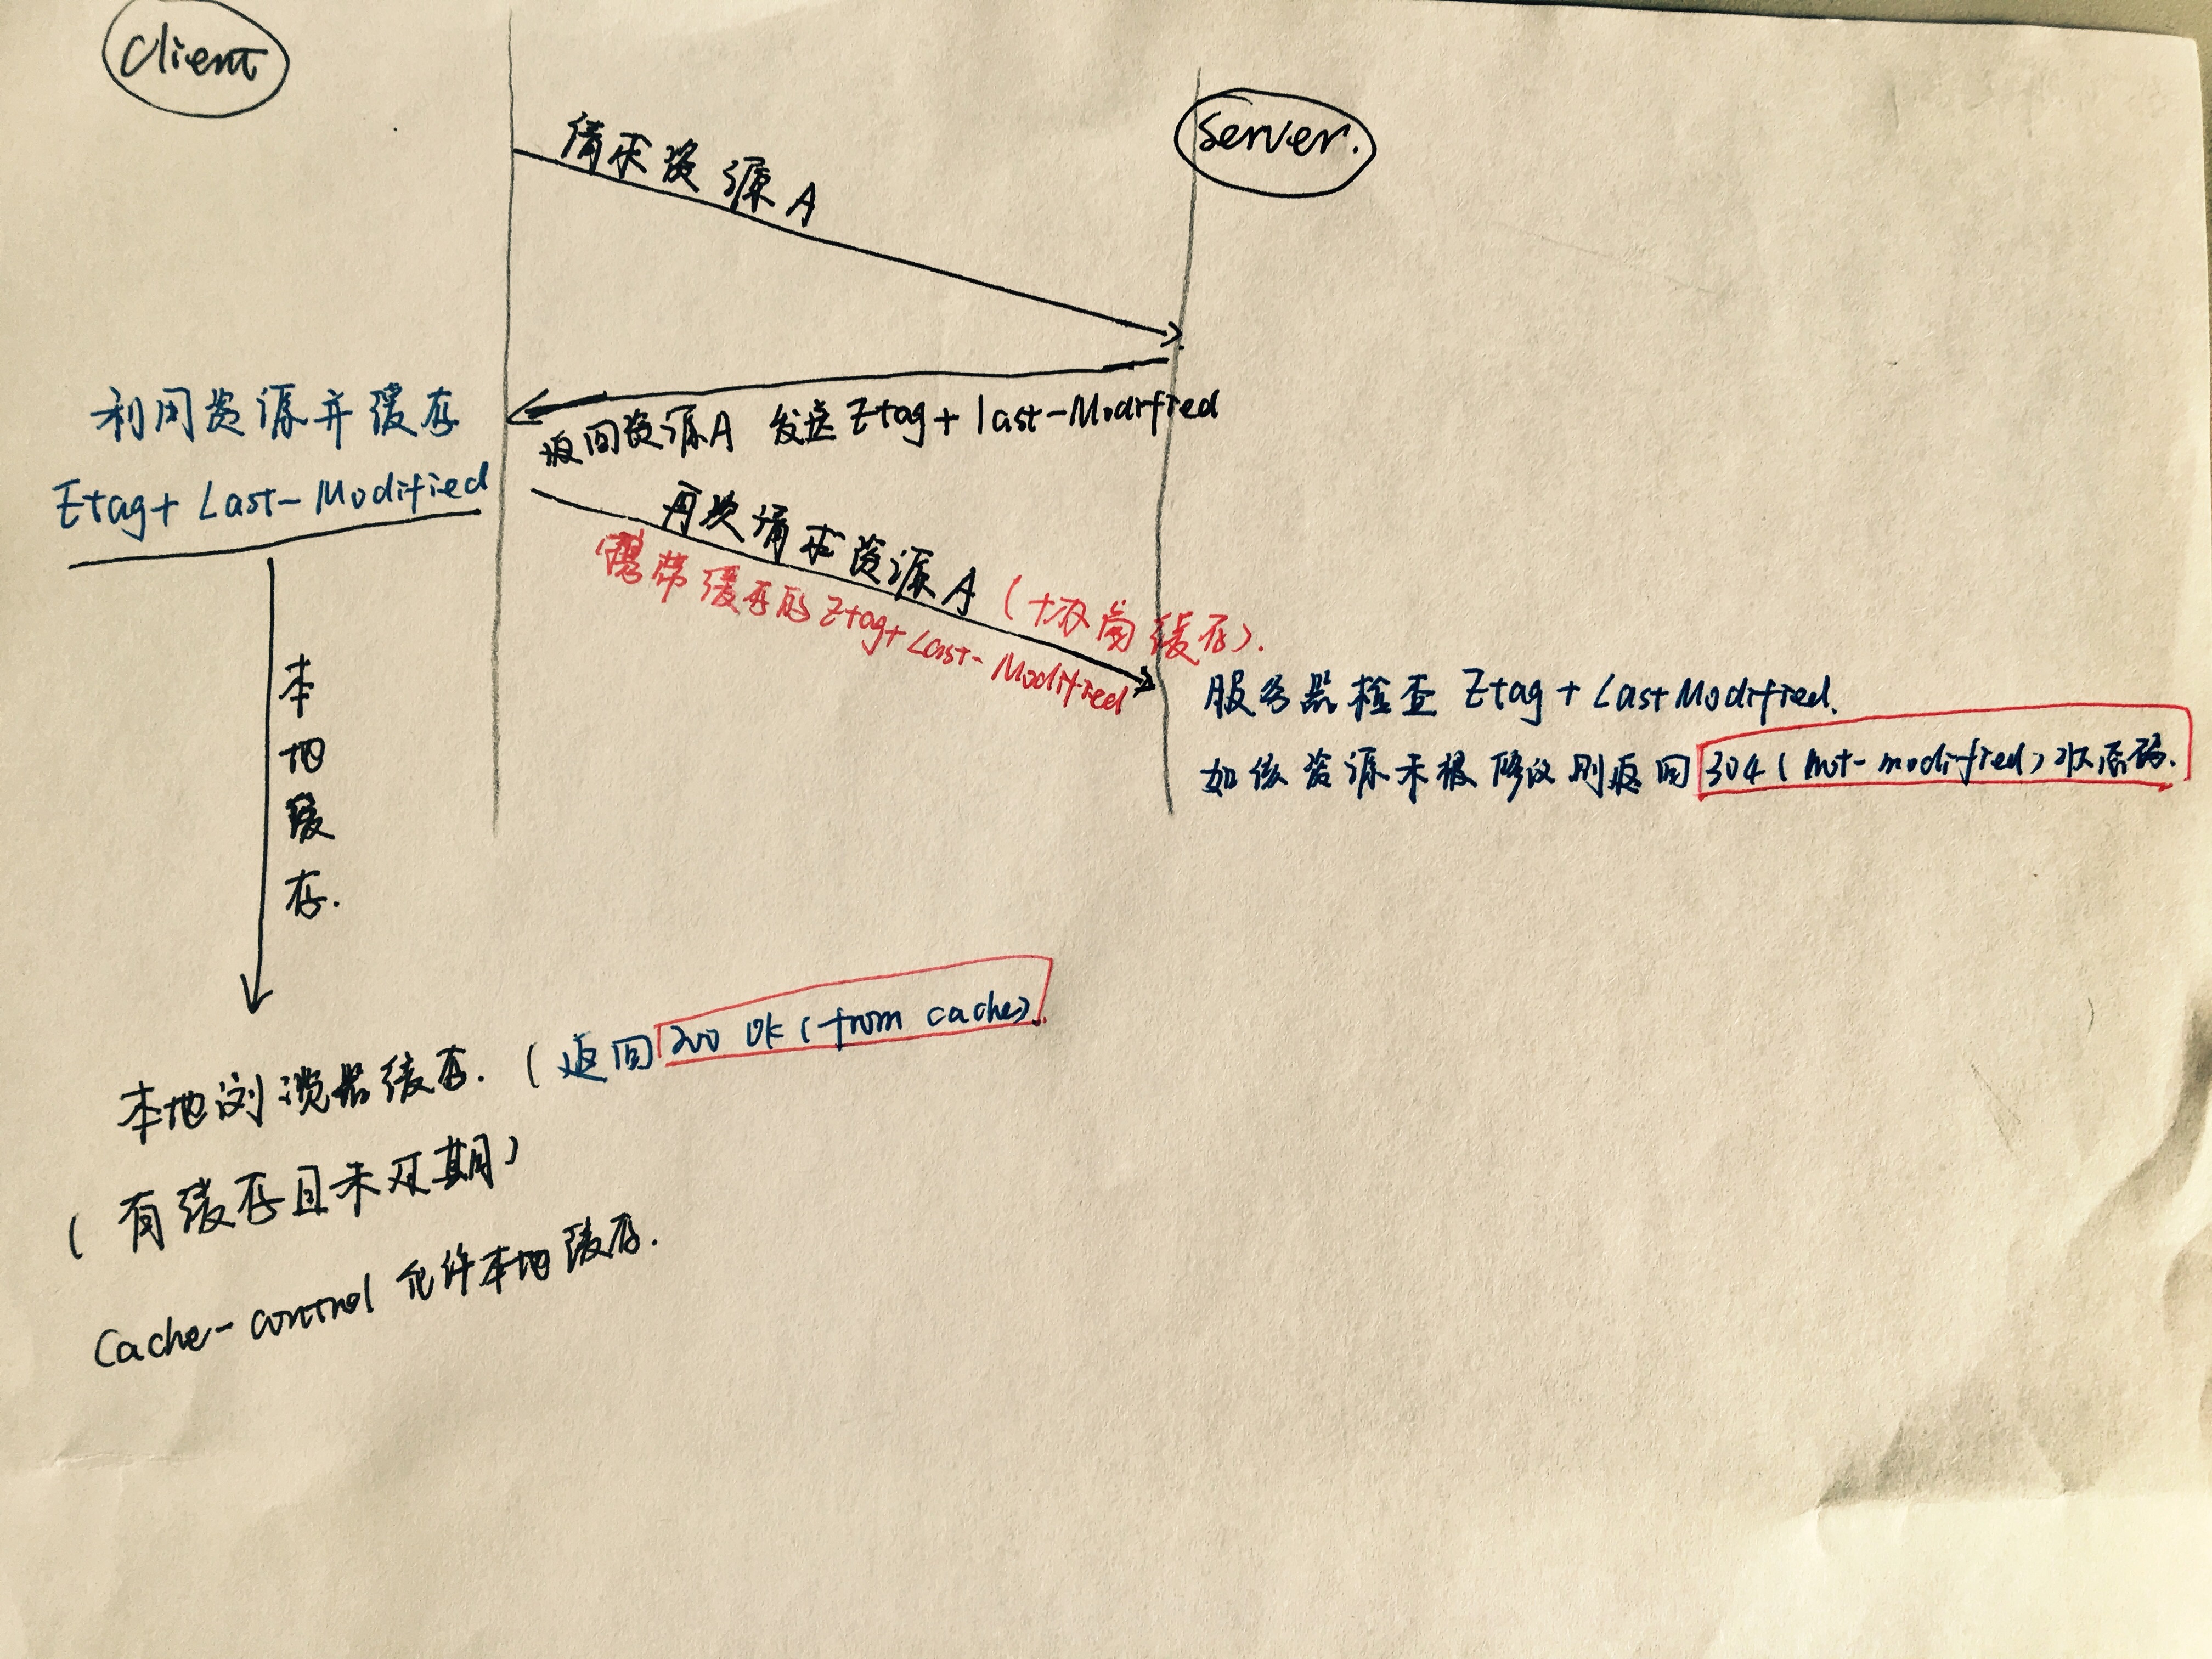 Client
Server.
请求资源A
返回资源A 发送Etag+last-Modified
利用资源并缓存
Etag+Last-Modified
再次请求资源A (协商缓存).
(携带缓存的Etag+Last-Modified
服务器检查 Etag+LastModified.
如该资源未被修改则返回304(not-modified)状态码.
本地缓存.
本地浏览器缓存.(返回200 OK(from cache).
(有缓存且未过期)
Cache-control 允许本地缓存.